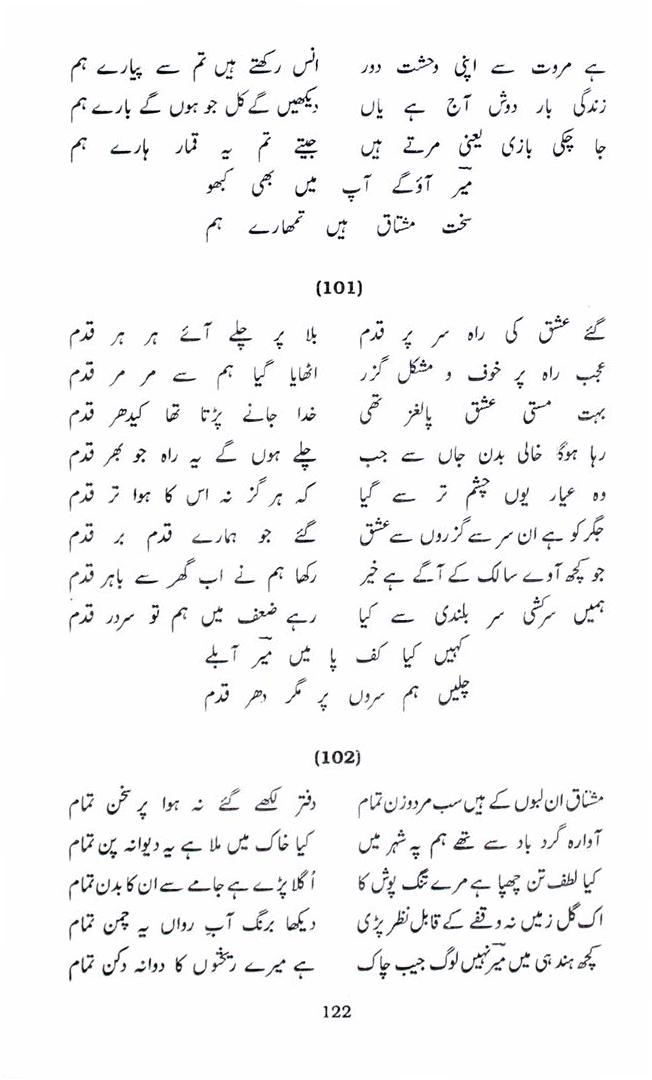 ہے مروت سے اپنی وحشت دور انس رکھتے ہیں تم سے پیارے ہم
زندگی بار دوش آج ہے یاں دیکھیں گے کل جو ہوں گے بارے ہم
جا چکی بازی یعنی مرتے ہیں جیتے تم یہ قمار ہارے ہم
میر آؤگے آپ میں بھی کبھو
سخت مشتاق ہیں تمھارے ہم
(101)
گئے عشق کی راہ سر پر قدم بلا پر چلے آئے ہر ہر قدم
عجب راہ پر خوف و مشکل گزر اٹھایا گیا ہم سے مر مر قدم
بہت مستی عشق پالغز تھی خدا جانے پڑتا تھا کیدھر قدم
رہا ہوگا خالی بدن جاں سے جب چلے ہوں گے یہ راہ جو بھر قدم
وہ عیار یوں چشم تر سے گیا کہ ہرگز نہ اس کا ہوا تر قدم
جگر کو ہے ان سر سے گزروں سے عشق گئے جو ہمارے قدم بر قدم
جو کچھ آوے سالک کے آگے ہے خیر رکھا ہم نے اب گھر سے باہر قدم
ہمیں سرکشی سر بلندی سے کیا رہے ضعف میں ہم تو سردر قدم
کہیں کیا کف پا میں میر آبلے
چلیں ہم سروں پر مگر دھر قدم
(102)
مشتاق ان لبوں کے ہیں سب مرد و زن تمام دفتر لکھے گئے نہ ہوا پر سخن تمام
آوارہ گرد باد سے تھے ہم پہ شہر میں کیا خاک میں ملا ہے یہ دیوانہ پن تمام
کیا لطف تن چھپا ہے مرے تنگ پوش کا اُگلا پڑے ہے جامے سے ان کا بدن تمام
اک گل زمیں نہ وقفے کے قابل نظر پڑی دیکھا برنگ آب رواں یہ چمن تمام
کچھ ہند ہی میں میر نہیں لوگ جیب چاک ہے میرے ریختوں کا دوانہ دکن تمام
122